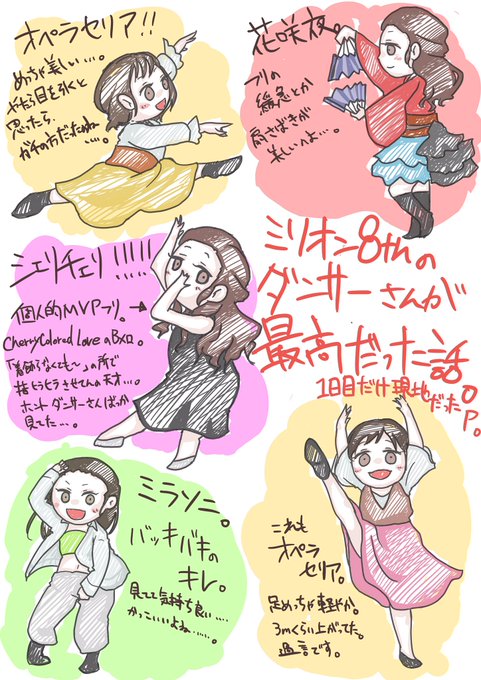 オペラセリア!!
めっちゃ美しい…。
やたら目を引くと
思ったら、
ガチの方だったわね
….
花咲夜。
フリの
緩急とか
扇さばきが
美しいよ…。
シェリチェリ!!!!!
個人的MVPフリ。→
CherryColored LoveのBメロ。
「着飾らなくても〜」の所で
指ヒラヒラさせてんの天才…。
ホントダンサーさんばっか
見てた…。
ミリオン8thの
ダンサーさんが
最高だった話。
1日目だけ現地だったP。
ミラソニ。
バッキバキの
キレ。
見てて気持ち良い….
かっこいいよね…….
これも
オペラ
セリア。
足めっちゃ軽やか。
3mくらい上がってた。
過言です。